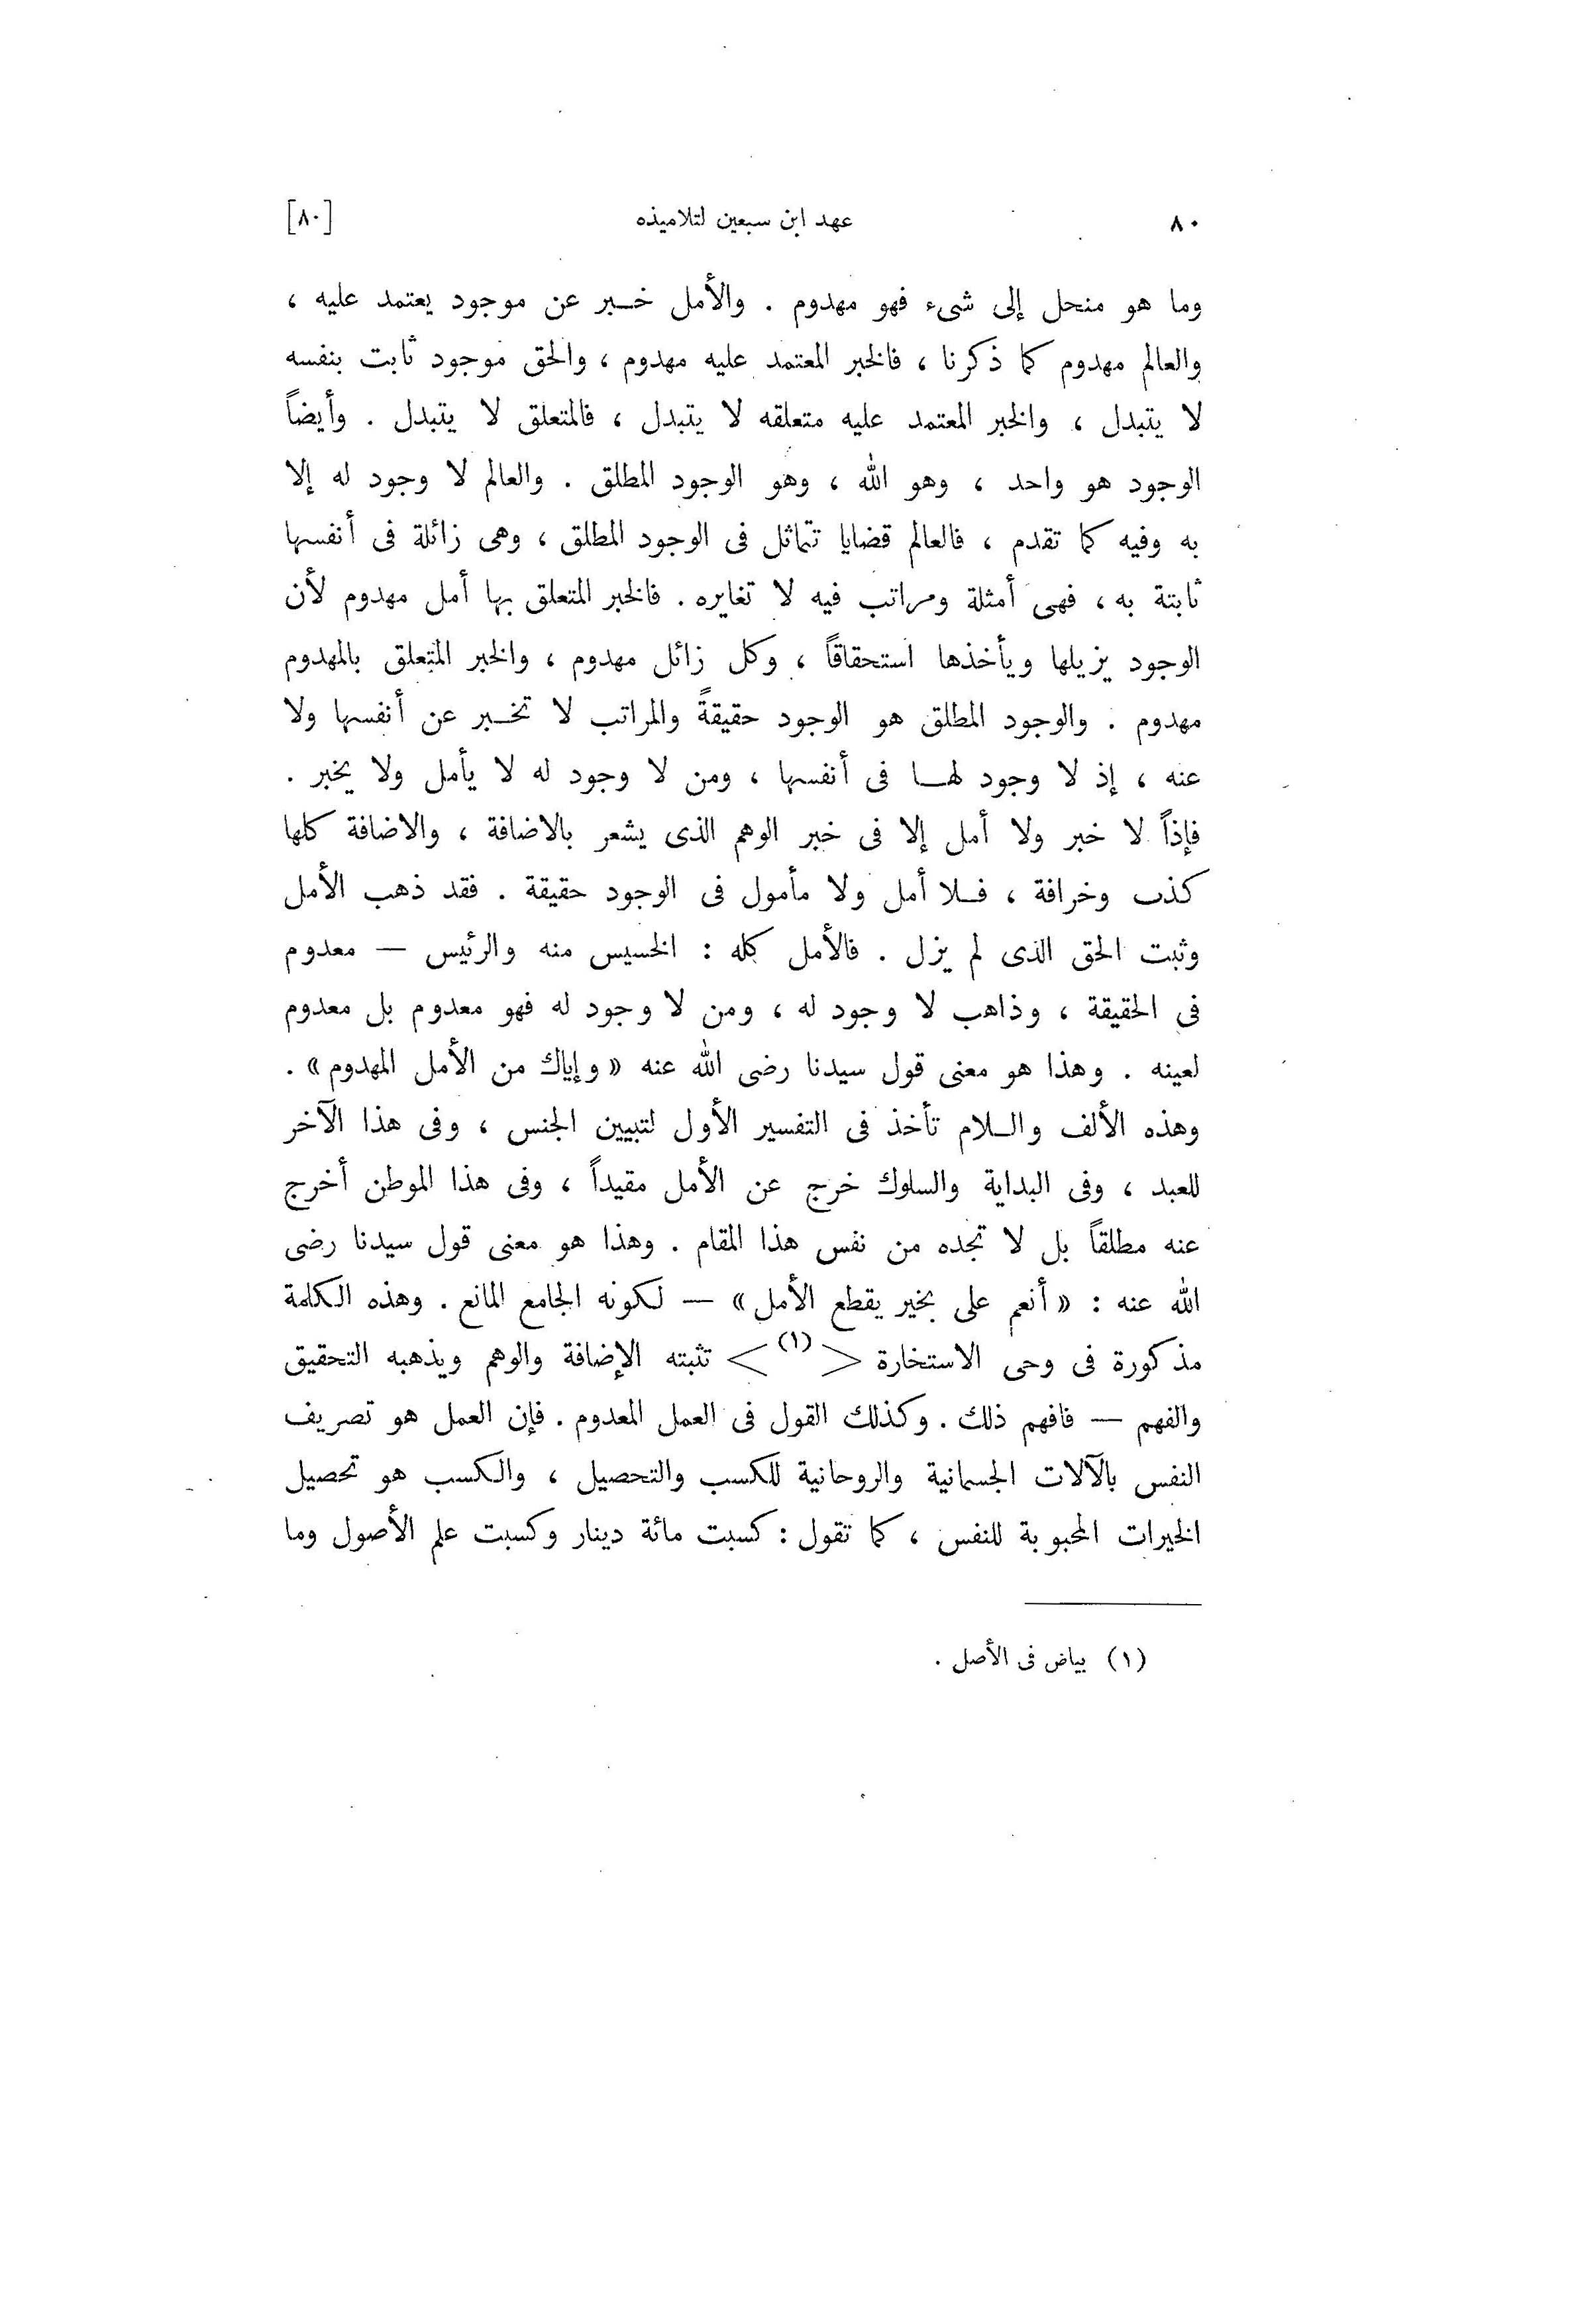 ٨٠ عهد ابن سبعين لتلاميذه [٨٠]
وما هو منحل إلى شىء فهو مهدوم . والأمل خبر عن موجود يعتمد عليه ،
والعالم مهدوم كما ذكرنا ، فالخبر المعتمد عليه مهدوم ، والحق موجود ثابت بنفسه
لا يتبدل ، والخبر المعتمد عليه متعلقه لا يتبدل ، فالمتعلق لا يتبدل . وأيضاً
الوجود هو واحد ، وهو الله ، وهو الوجود المطلق . والعالم لا وجود له إلا
به وفيه كما تقدم ، فالعالم قضايا تتماثل فى الوجود المطلق ، وهى زائلة فى أنفسها
ثابتة به ، فهى أمثلة ومراتب فيه لا تغايره . فالخبر المتعلق بها أمل مهدوم لأن
الوجود يزيلها ويأخذها استحقاقاً ، وكل زائل مهدوم ، والخبر المتعلق بالمهدوم
مهدوم . والوجود المطلق هو الوجود حقيقةً والمراتب لا تخبر عن أنفسها ولا
عنه ، إذ لا وجود لها فى أنفسها ، ومن لا وجود له لا يأمل ولا يخبر .
فإذاً لا خبر ولا أمل إلا فى خبر الوهم الذى يشعر بالاضافة ، والاضافة كلها
كذب وخرافة ، فلا أمل ولا مأمول فى الوجود حقيقة . فقد ذهب الأمل
وثبت الحق الذى لم يزل . فالأمل كله : الخسيس منه والرئيس — معدوم
فى الحقيقة ، وذاهب لا وجود له ، ومن لا وجود له فهو معدوم بل معدوم
لعينه . وهذا هو معنى قول سيدنا رضى الله عنه « وإياك من الأمل المهدوم » .
وهذه الألف والـلام تأخذ فى التفسير الأول لتبيين الجنس ، وفى هذا الآخر
للعبد ، وفى البداية والسلوك خرج عن الأمل مقيداً ، وفى هذا الموطن أخرج
عنه مطلقاً بل لا تجده من نفس هذا المقام . وهذا هو معنى قول سيدنا رضى
الله عنه : « أنعم على بخير يقطع الأمل » — لكونه الجامع المانع . وهذه الكلمة
مذكورة فى وحى الاستخارة < (١) > تثبته الإضافة والوهم ويذهبه التحقيق
والفهم — فافهم ذلك . وكذلك القول فى العمل المعدوم . فإن العمل هو تصريف
النفس بالآلات الجسمانية والروحانية للكسب والتحصيل ، والكسب هو تحصيل
الخيرات المحبوبة للنفس ، كما تقول : كسبت مائة دينار وكسبت علم الأصول وما
(١) بياض فى الأصل .